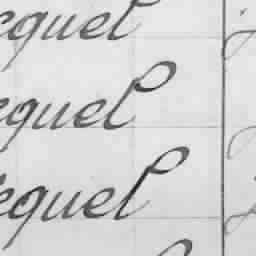 equel
equel
equel